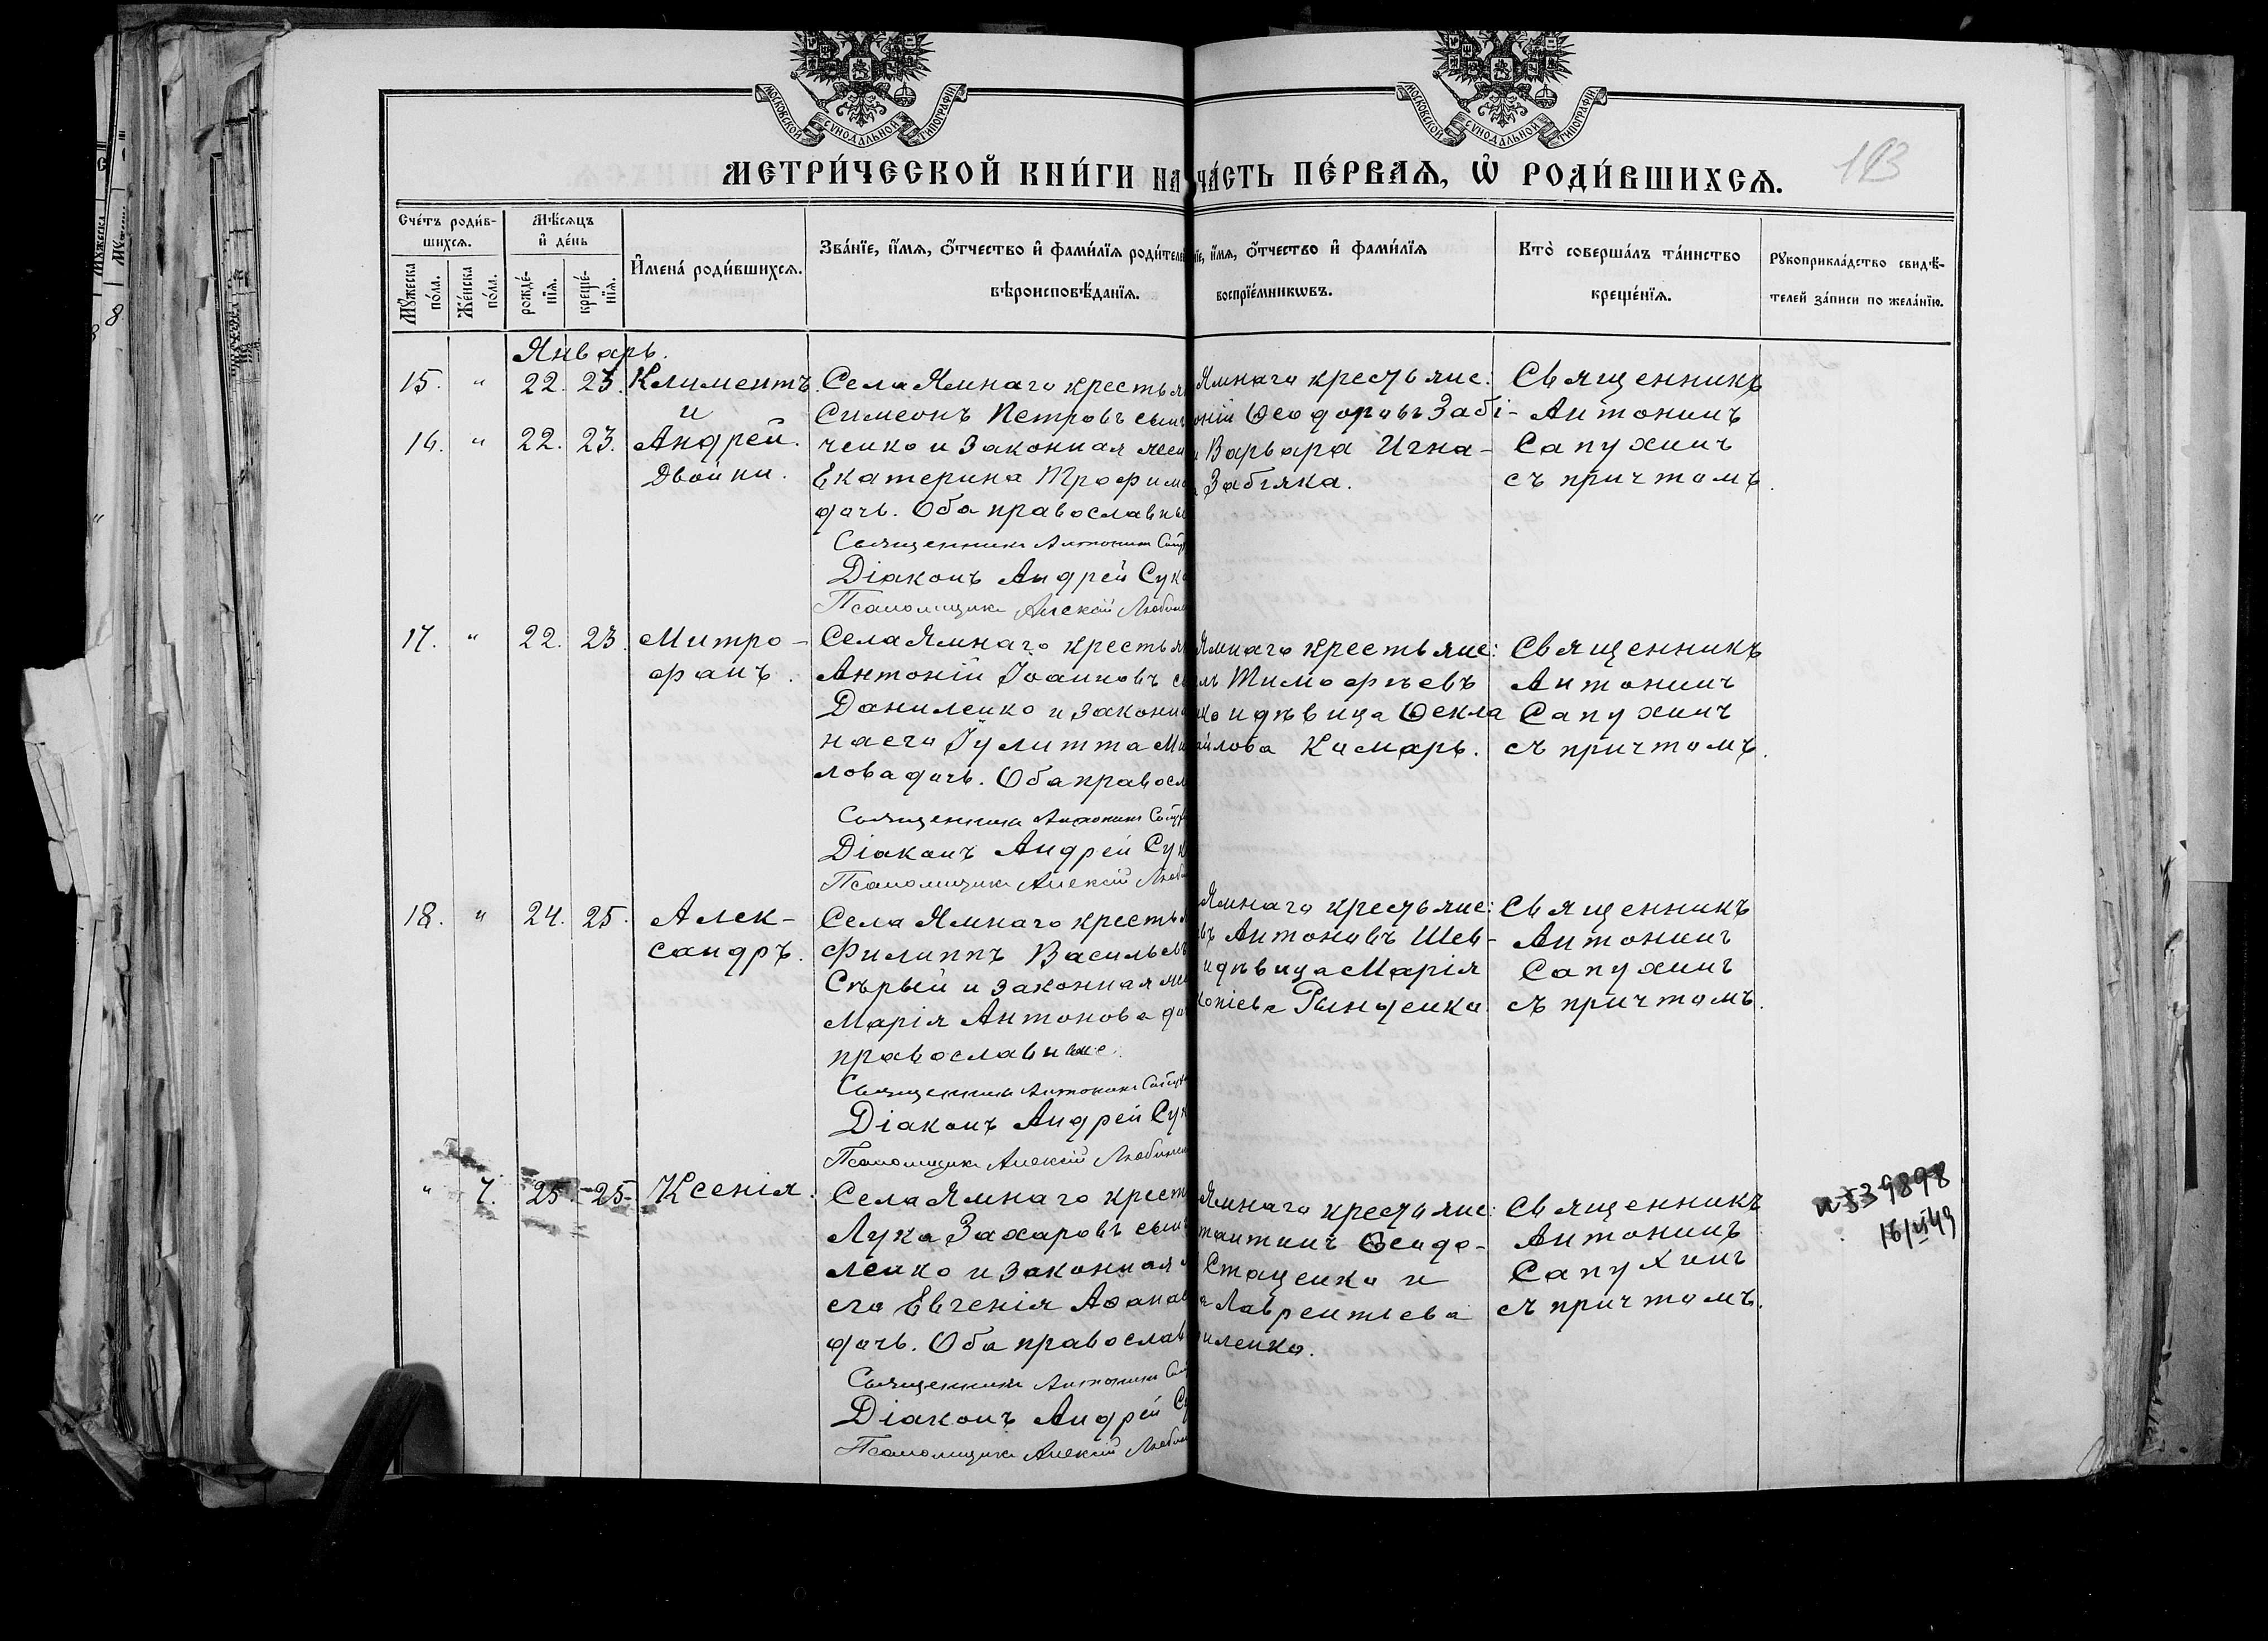 МОСКОВСКОЙ СѴНОДАЛЬНОЙ ТИПОГРАФІИ
МОСКОВСКОЙ СѴНОДАЛЬНОЙ ТИПОГРАФІИ
МЕТРИ́ЧЕСКОЙ КНИ́ГИ НА ЧА́СТЬ ПЕ́РВАЯ, Ѡ҆ РОДИ́ВШИХСЯ.
Сче́тъ роди́в-
шихся.
Мѣ́сяцъ
и҆ де́нь
Мꙋ́жеска
по́ла.
Же́нска
по́ла.
рожде́-
нїя.
креще́-
нїя.
И҆мена́ роди́вшихся.
Зва́нїе, и҆́мя, ѻ҆́тчество и҆ фами́лїя роди́теле
вѣроисповѣ́данїя.
нїе, и҆́мя, ѻ҆́тчество и҆ фами́лїя
воспрїе́мникѡвъ.
Кто̀ соверша́лъ та́инство
креще́нїя.
Рꙋкоприкла́дство свидѣ́-
телей за́писи по жела́нїю.
Январь.
15. " 22. 23. Климентъ
и
16. " 22. 23. Андрей.
Двойни.
Села Ямнаго крестья
Симеонъ Петровъ сынъ
ченко и законная жен
Екатерина Трофимо
дочь. Оба православны
Священникъ Антонинъ Сапу
Діаконъ Андрей Сук
Псаломщикъ Алексій Любим
Ямнаго крестьяне:
оній Ѳеодоровъ Забі-
и Варвара Игна-
Забіяка.
Священникъ
Антонинъ
Сапухинъ
съ причтомъ.
17. " 22. 23. Митро-
фанъ.
Села Ямнаго крестья
Антоній Іоанновъ с
Даниленко и законн
на его Іулитта Ми
лова дочь. Оба правосл
Священникъ Антонинъ Сапух
Діаконъ Андрей Сук
Псаломщикъ Алексій Любим
Ямнаго крестьяне:
лъ Тимофѣевъ
ко и дѣвица Ѳекла
йлова Комарь.
Священникъ
Антонинъ
Сапухинъ
съ причтомъ.
18. " 24. 25. Алек-
сандръ.
Села Ямнаго крестья
Филиппъ Васильевъ
Сѣрый и законная же
Марія Антонова до
православные.
Священникъ Антонинъ Сапух
Діаконъ Андрей Сук
Псаломщикъ Алексій Любим
Ямнаго крестьяне:
въ Антоновъ Шев-
и дѣвица Марія
копіева Рынденко
Священникъ
Антонинъ
Сапухинъ
съ причтомъ.
" 7. 25. 25. Ксенія.
Села Ямнаго крест
Лука Захаровъ сынъ
ленко и законная
его Евгенія Аѳанас
дочь. Оба православ
Священникъ Антонинъ Сап
Діаконъ Андрей Су
Псаломщикъ Алексій Любим
Ямнаго крестьяне:
тантинъ Ѳеодо-
Стаценко и
Лаврентіева
иленко.
Священникъ
Антонинъ
Сапухинъ
съ причтомъ.
39898
16/VI 49